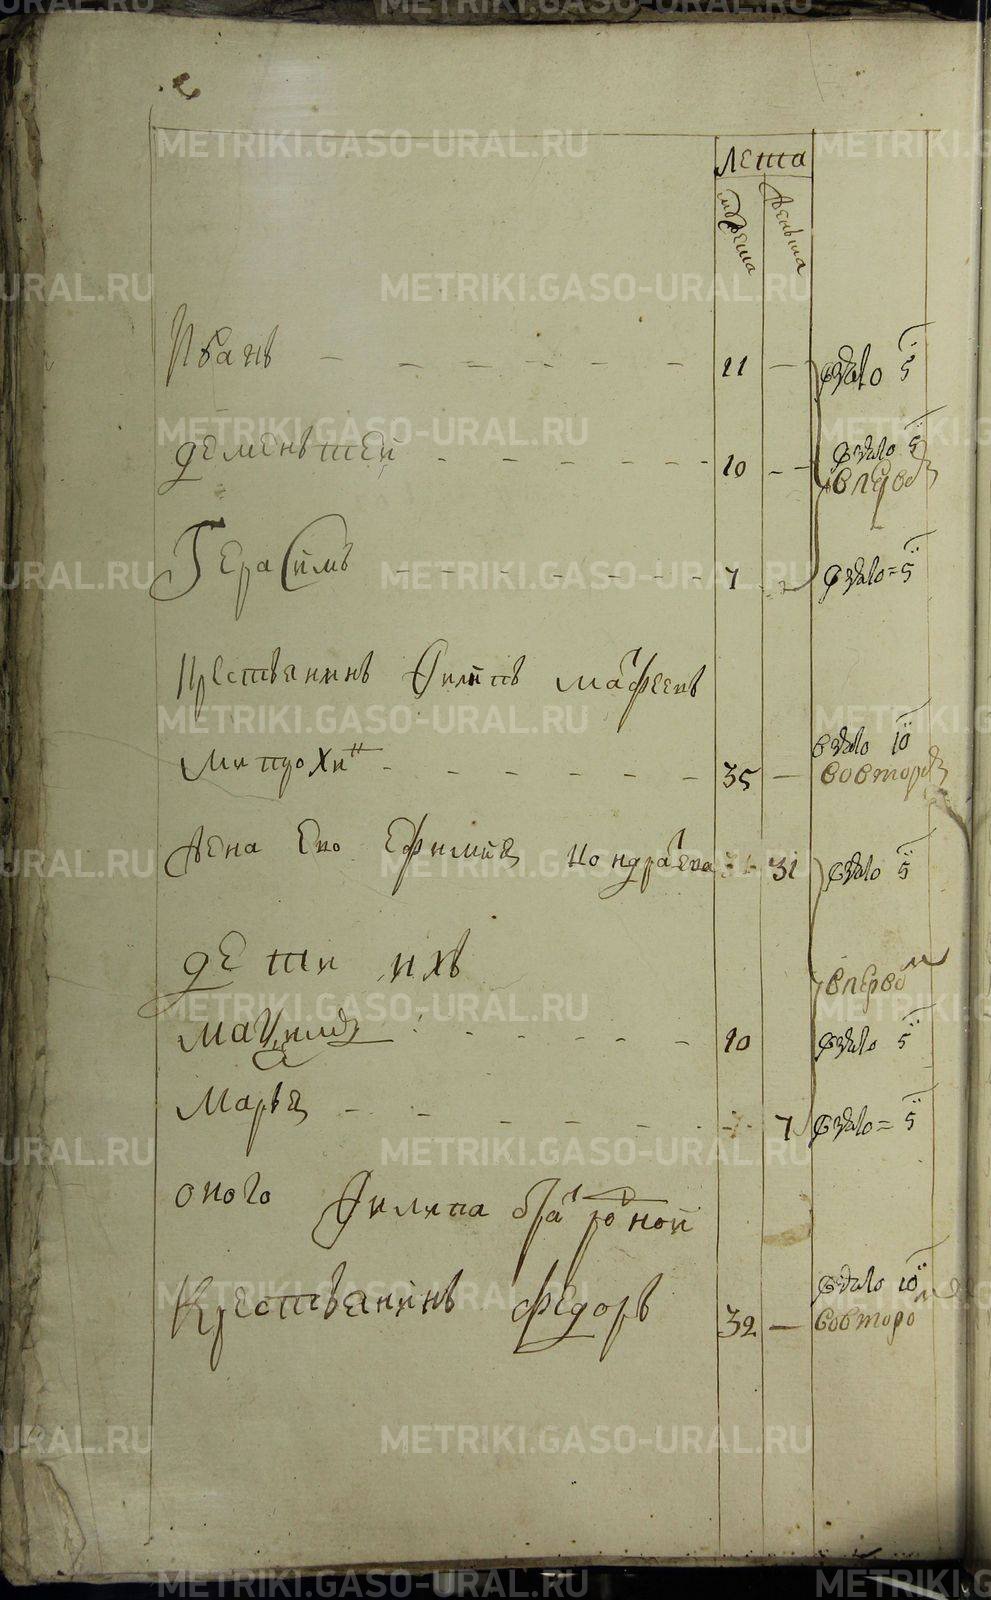 METRIKI.GASO-URAL.RU
лета
мужеска
женска
Иванъ 11 — взято 5
дементей 10 — взято 5
вперво
Герасимъ 7 взято = 5
крестьянинъ Филипъ матфеевъ
митрохин 35 — взято 10
вовторо
жена ево Ефимия кондратева 31 взято 5
дети ихъ
вперво
10 взято 5
Марья 7 взято = 5
оного Филипа брат родной
Крестьянинъ федоръ 32 — взято 10
вовторо